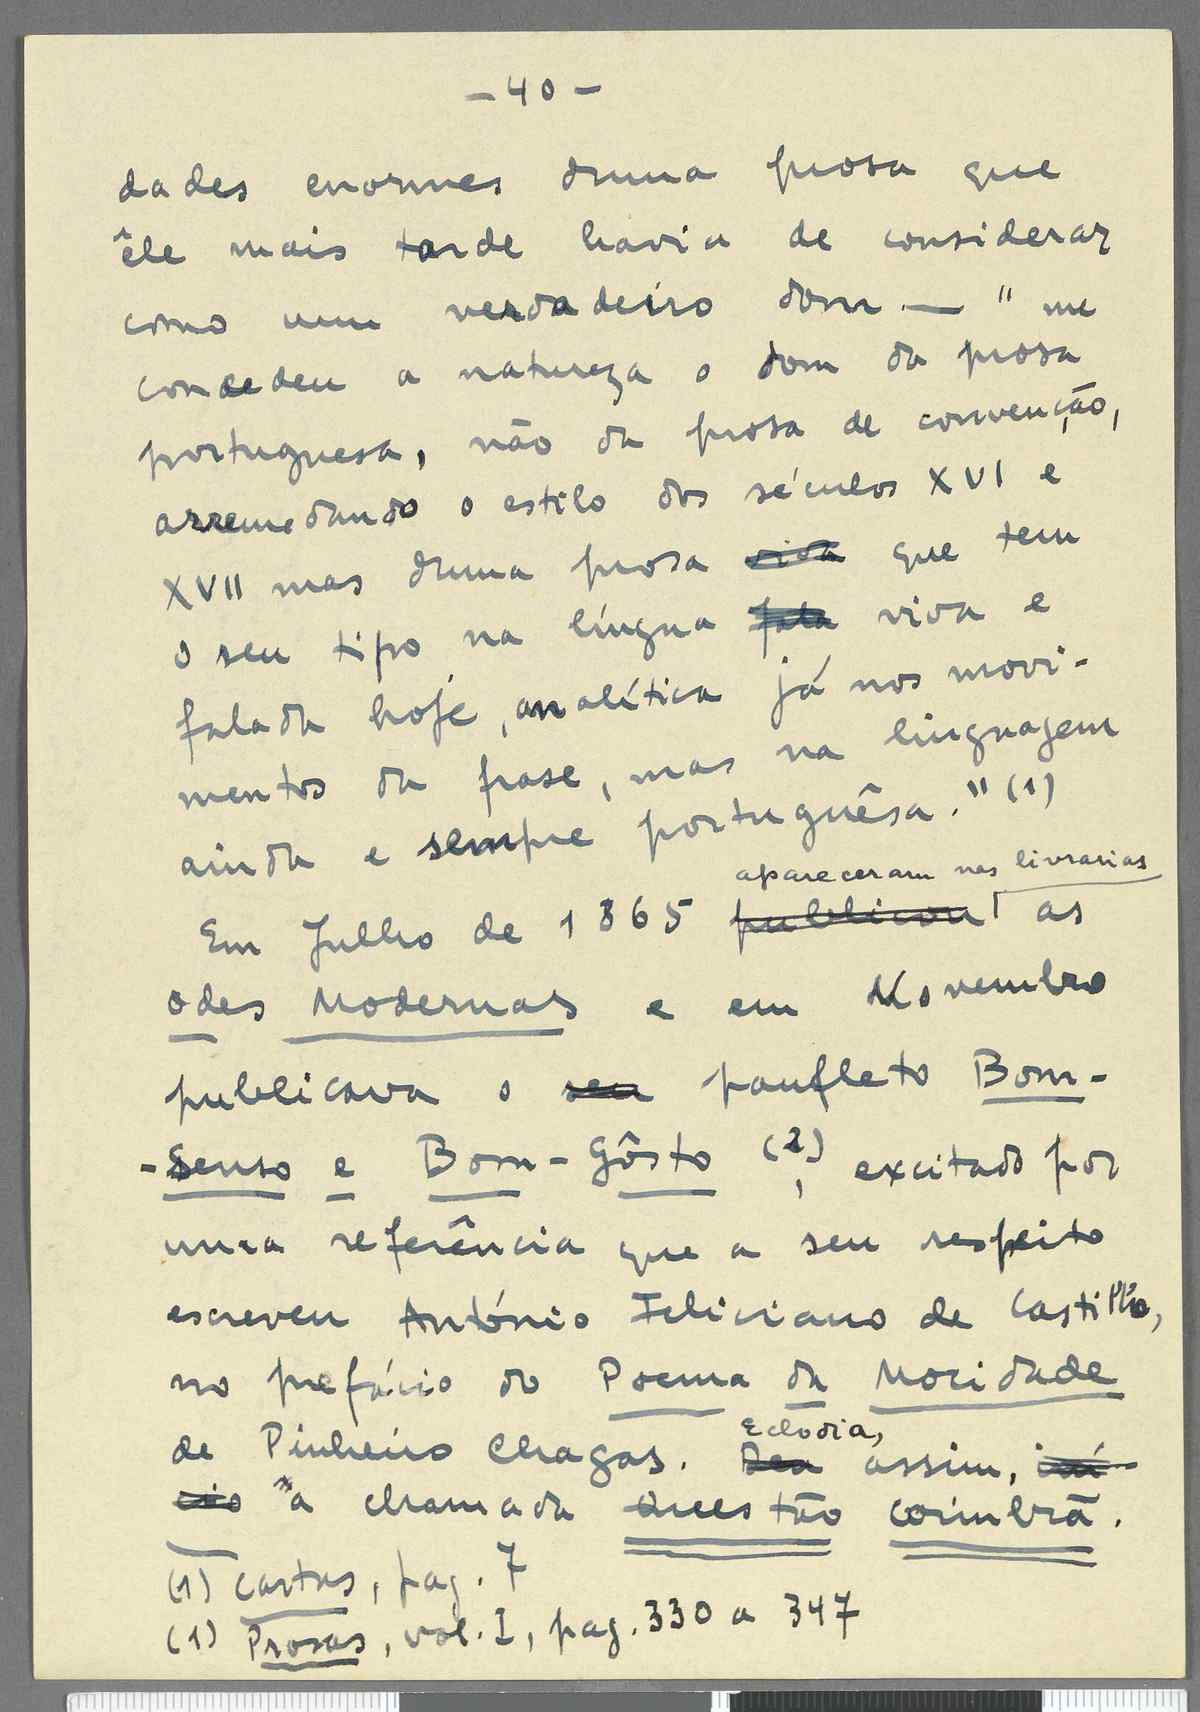 - 40 -
dades enormes duma prosa que
êle mais tarde havia de considerar
como um verdadeiro dom — "me
concedeu a natureza o dom da prosa
portuguesa, não da prosa de convenção,
arremedando o estilo dos séculos XVI e
XVII mas duma prosa viva que tem
o seu tipo na língua fala viva e
falada hoje, analítica já nos movi-
mentos da frase, mas na linguagem
ainda e sempre portuguêsa." (1)
apareceram nas livrarias
Em Julho de 1865 publicou as
odes Modernas e em Novembro
publicava o seu panfleto Bom-
-Senso e Bom-Gôsto (2), excitado por
uma referência que a seu respeito
escreveu António Feliciano de Castilho,
no prefácio do Poema da Mocidade
Eclodia,
de Pinheiro Chagas. Deu assim, iní-
cio a chamada Questão coimbrã.
(1) Cartas, pag. 7
(1) Prosas, vol. I, pag. 330 a 347